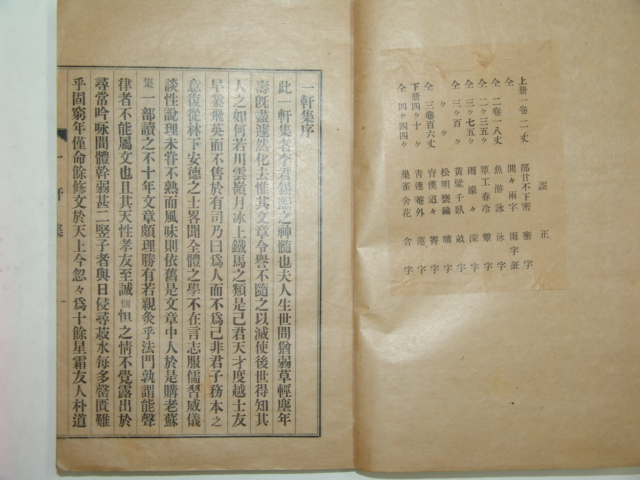 誤 正
上册一卷二丈 部甘不下密 蜜字
仝 間々兩字 雨字証
仝 二卷一八丈 魚游詠 泳字
仝 二々三五々 覃工春冷 蕈字
仝 三々七五々 雨濠々 濛字
仝 三々百々 黃鸎千臥 字
々 々 松明甕 牖字
仝 三卷百六丈 容漢道々 字
下册四々十々 靑連庵外 字
仝 四々四四々 巢雀舍花 含字
一軒集序
此一軒集者李君錫熙之神髓也夫人生世間猶弱草輕塵年
壽旣盡遽然化去惟其文章令譽不隨之以滅使後世得知其
人之如何若川雲嶺月冰上鐵馬之類是已君天才度越士友
早業飛英而不售於有司乃曰爲人而不爲己非君子務本之
意復從林下安德之士畧聞全體之學不在言志服儒習威儀
談性說理未甞不熟而風味則依舊是文章中人於是購老蘇
集一部讀之不十年文章頗理勝有若親灸乎法門孰謂能聲
律者不能屬文也且其天性孝友至誠惻怛之情不覺露出於
尋常吟咏間體幹弱甚二竪子者與日侵尋菽水每多罄匱難
乎固窮年僅命餘修文於天上今忽々爲十餘星霜友人朴道
一軒集
一